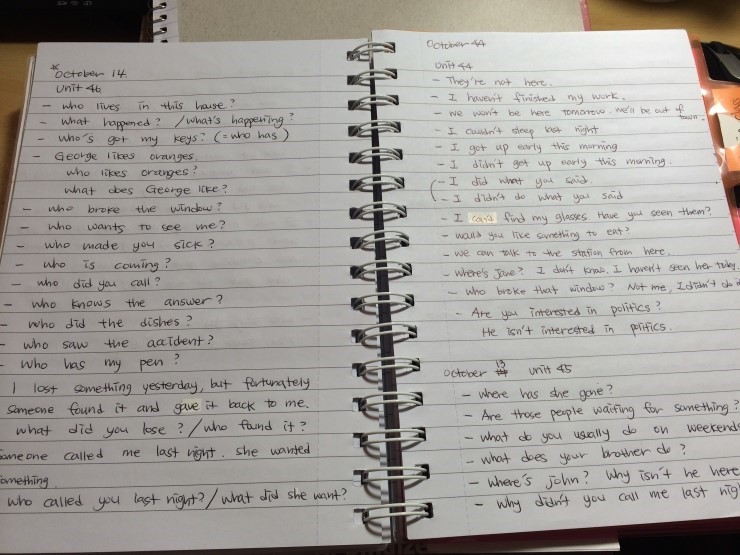 * October 14.
Unit 46
- who lives in this house?
- what happened? /what's happening?
- who's got my keys? (= who has)
- George likes oranges.
who likes oranges?
what does George like?
- who broke the window?
- who wants to see me?
- who made you sick?
- who is coming?
- who did you call?
- who knows the answer?
- who did the dishes?
- who saw the accident?
- who has my pen?
I lost something yesterday, but fortunately
someone found it and gave it back to me.
what did you lose? / who found it?
someone called me last night. she wanted
something.
who called you last night? / what did she want?
October 44
Unit 44
- They're not here.
- I haven't finished my work.
- we won't be here tomorrow. we'll be out of town.
- I couldn't sleep last night
- I got up early this morning
- I didn't get up early this morning.
- I did what you said.
- I didn't do what you said
- I can't find my glasses. Have you seen them?
- would you like something to eat?
- we can walk to the station from here.
- where's Jane? I don't know. I haven't seen her today.
- who broke that window? Not me, I didn't do it
- Are you interested in politics?
He isn't interested in politics.
October 13 unit 45
- where has she gone?
- Are those people waiting for something?
- what do you usually do on weekends
- what does your brother do?
- where's john? Why isn't he here
- why didn't you call me last nig